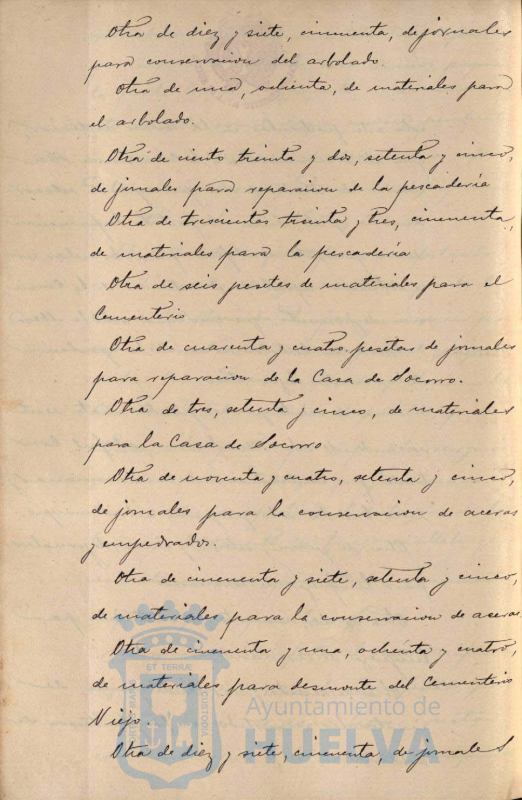 Otra de diez y siete, cincuenta, de jornales
para conservacion del arbolado.
Otra de una, ochenta, de materiales para
el arbolado.
Otra de ciento treinta y dos, setenta y cinco,
de jornales para reparacion de la pescadería
Otra de trescientas treinta y tres, cincuenta,
de materiales para la pescadería
Otra de seis pesetas de materiales para el
Cementerio
Otra de cuarenta y cuatro pesetas de jornales
para reparacion de la Casa de Socorro.
Otra de tres, setenta y cinco, de materiales
para la Casa de Socorro
Otra de noventa y cuatro, setenta y cinco,
de jornales para la conservacion de aceras
y empedrados.
Otra de cincuenta y siete, setenta y cinco,
de materiales para la conservacion de aceras
Otra de cincuenta y una, ochenta y cuatro,
de materiales para desmonte del Cementerio
Viejo.
Otra de diez y siete, cincuenta, de jornales
ET TERRÆ
Ayuntamiento de
HUELVA